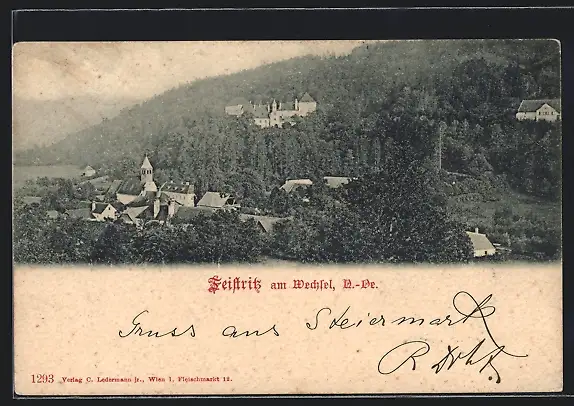 Feistritz am Wechsel, N.-Oe.
Gruss aus Steiermark
1293 Verlag C. Ledermann jr., Wien I, Fleischmarkt 12.